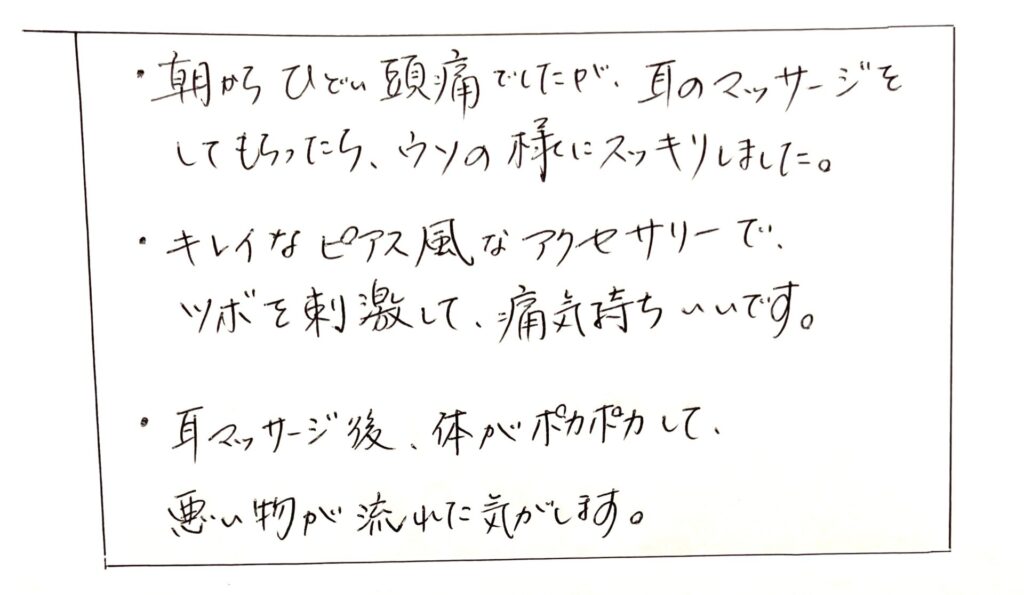 ・朝からひどい頭痛でしたが、耳のマッサージを
してもらったら、ウソの様にスッキリしました。
・キレイなピアス風なアクセサリーで、
ツボを刺激して、痛気持ちいいです。
・耳マッサージ後、体がポカポカして、
悪い物が流れた気がします。